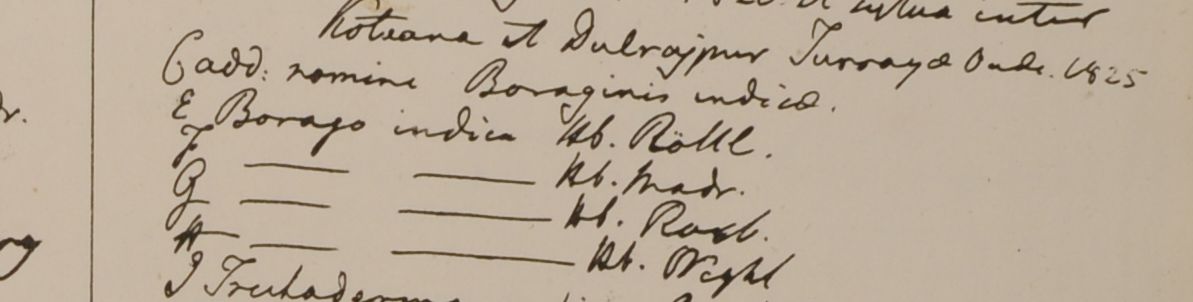 sylva inter
Koteana et Dulrajpur Turrayæ Oude. 1825
C add: nomine Boraginis indicæ.
E Borago indica Hb. Röttl.
F — — Hb. Madr.
G — — Hb. Roxb.
H — — Hb. Wight
I
r.